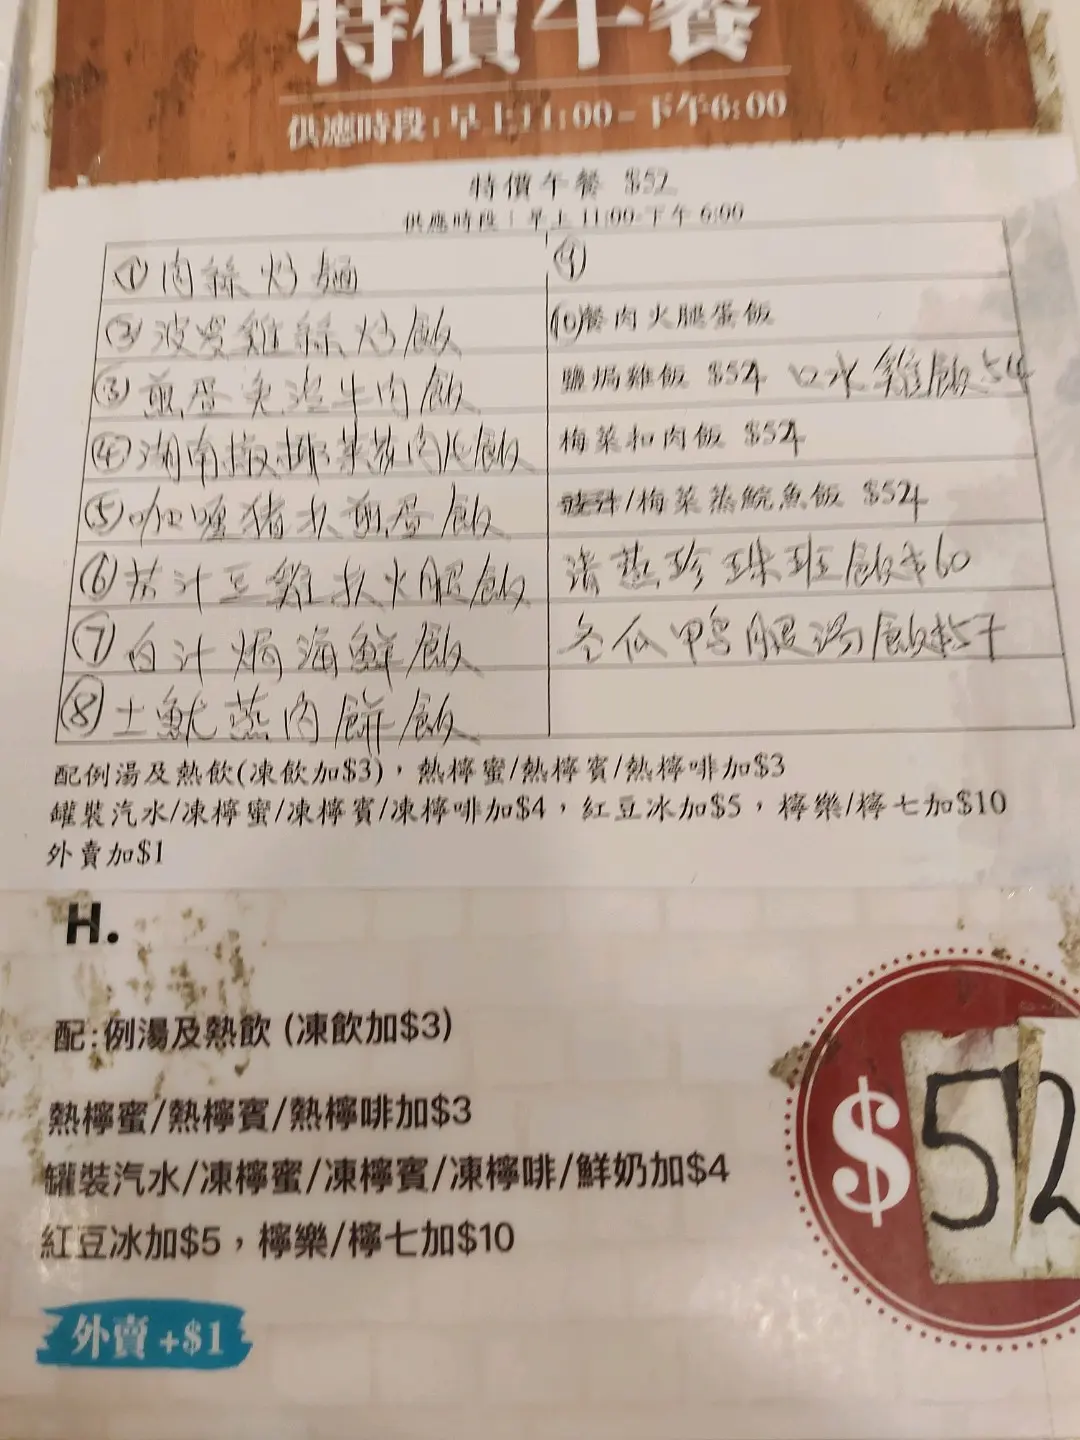 特價午餐
供應時段:早上11:00-下午6:00
特價午餐 $52
供應時段:早上11:00-下午6:00
①肉絲炒麵
②波蘿雞絲炒飯
③煎蛋免治牛肉飯
④湖南辣椒菜蒸肉片飯
⑤咖喱豬扒煎蛋飯
⑥茄汁豆雞扒火腿飯
⑦白汁焗海鮮飯
⑧土魷蒸肉餅飯
⑨
⑩餐肉火腿蛋飯
鹽焗雞飯 $54 口水雞飯54
梅菜扣肉飯 $54
/梅菜蒸鯇魚飯 $54
清蒸珍珠班飯$60
冬瓜鴨腿湯飯$57
配例湯及熱飲(凍飲加$3),熱檸蜜/熱檸賓/熱檸啡加$3
罐裝汽水/凍檸蜜/凍檸賓/凍檸啡加$4,紅豆冰加$5,檸樂/檸七加$10
外賣加$1
H.
配:例湯及熱飲 (凍飲加$3)
熱檸蜜/熱檸賓/熱檸啡加$3
罐裝汽水/凍檸蜜/凍檸賓/凍檸啡/鮮奶加$4
紅豆冰加$5,檸樂/檸七加$10
$52
外賣 +$1